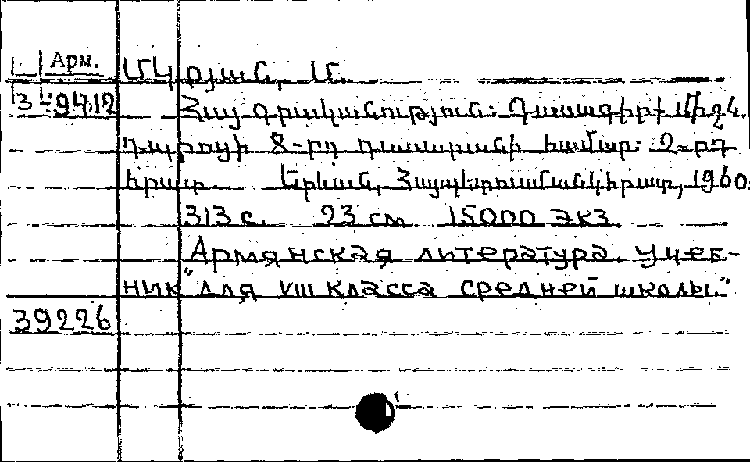 Арм.
Մկրյան, Մ.
3-9712
Հայ գրականություն: Դասագիրք միջն.
դպրոցի 8-րդ դասարանի համար: 2-րդ
հրատ. Երևան, Հայպետուսմանկհրատ, 1960.
313 с. 23 см 15000 экз.
"Армянская литература. Учеб-
ник для VIII класса средней школы."
39226